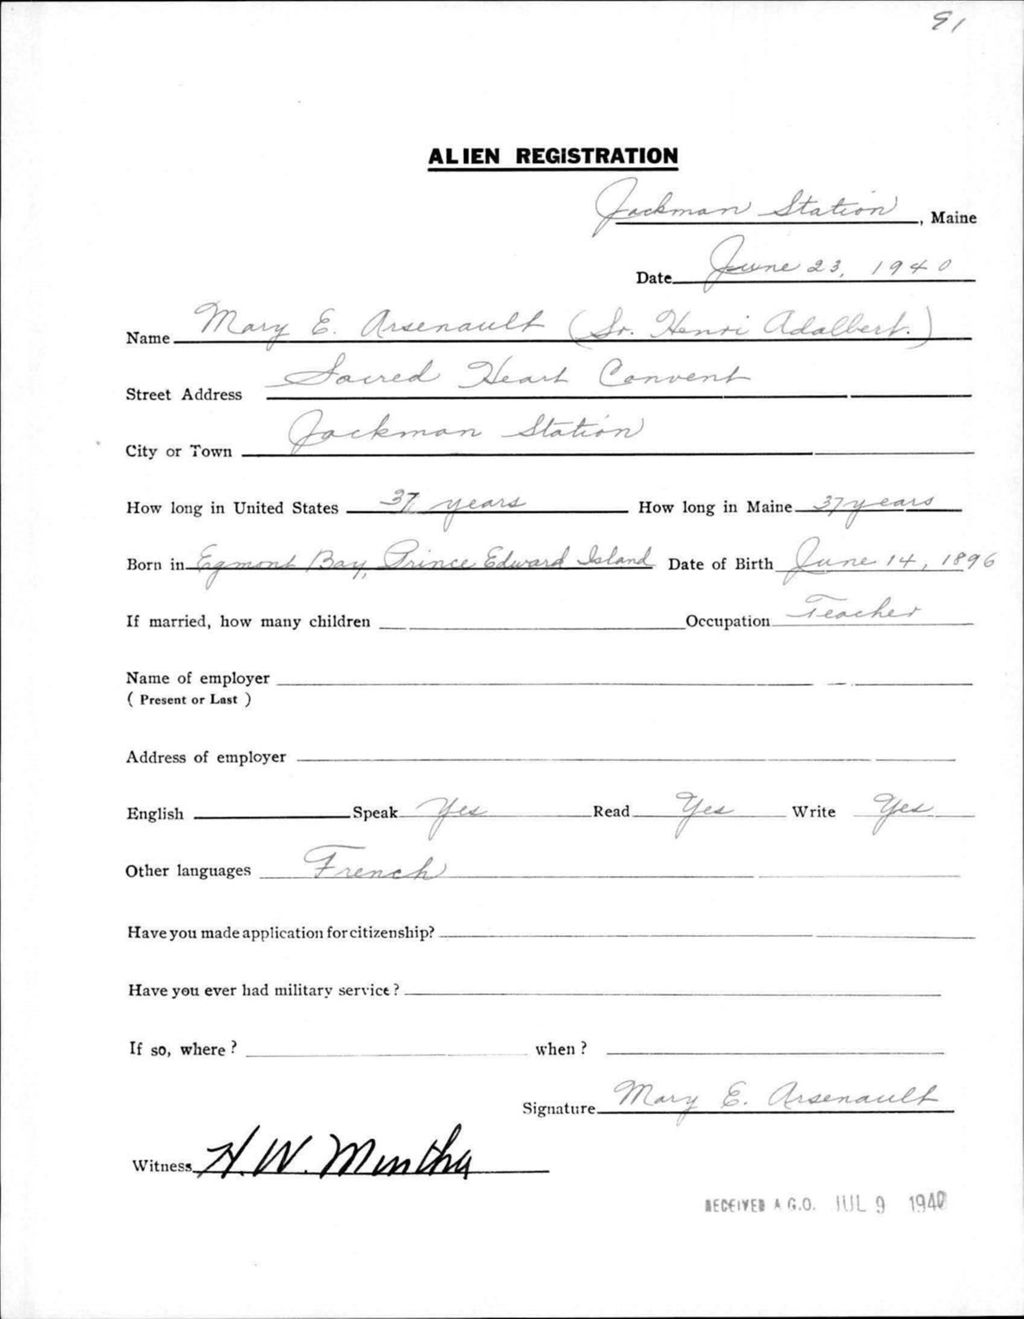 91
ALIEN REGISTRATION
Jackman Station, Maine
Date June 23, 1940
Name Mary E. Arsenault (Sr. Henri Adalbert.)
Street Address Sacred Heart Convent
City or Town Jackman Station
How long in United States 37 years How long in Maine 37 years
Born in Egmont Bay, Prince Edward Island Date of Birth June 14, 1896
If married, how many children Occupation Teacher
Name of employer
( Present or Last )
Address of employer
English Speak Yes Read Yes Write Yes
Other languages French
Have you made application for citizenship?
Have you ever had military service?
If so, where? when?
Signature Mary E. Arsenault
Witness H. W. Minthy
RECEIVED A.G.O. JUL 9 1940